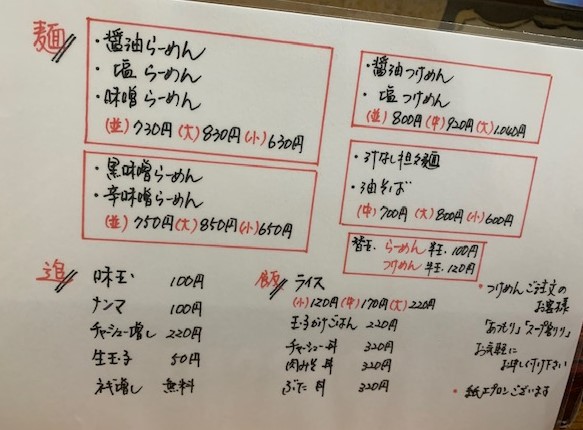 麺
・醤油らーめん
・塩らーめん
・味噌らーめん
(並)730円(大)830円(小)630円
・黒味噌らーめん
・辛味噌らーめん
(並)750円(大)850円(小)650円
・醤油つけめん
・塩つけめん
(並)800円(中)920円(大)1,040円
・汁なし担々麺
・油そば
(中)700円(大)800円(小)600円
替玉・らーめん半玉・100円
つけめん半玉・120円
追
味玉・100円
ナンマ 100円
チャーシュー増し 220円
生玉子 50円
ネギ増し 無料
飯
ライス
(小)120円(中)170円(大)220円
玉子かけごはん 220円
チャーシュー丼 320円
肉みそ丼 320円
ぶた丼 320円
・つけめんご注文の
お客様
「あつもり」「スープ割り」
お気軽に
お申し付け下さい
・紙エプロンございます